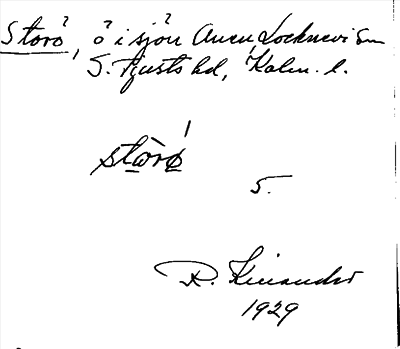 Storö, ö i sjön Anen, Locknevi sn
S. Tjusts hd, Kalm. l.
stòrǿ
5.
R. Kinander
1929